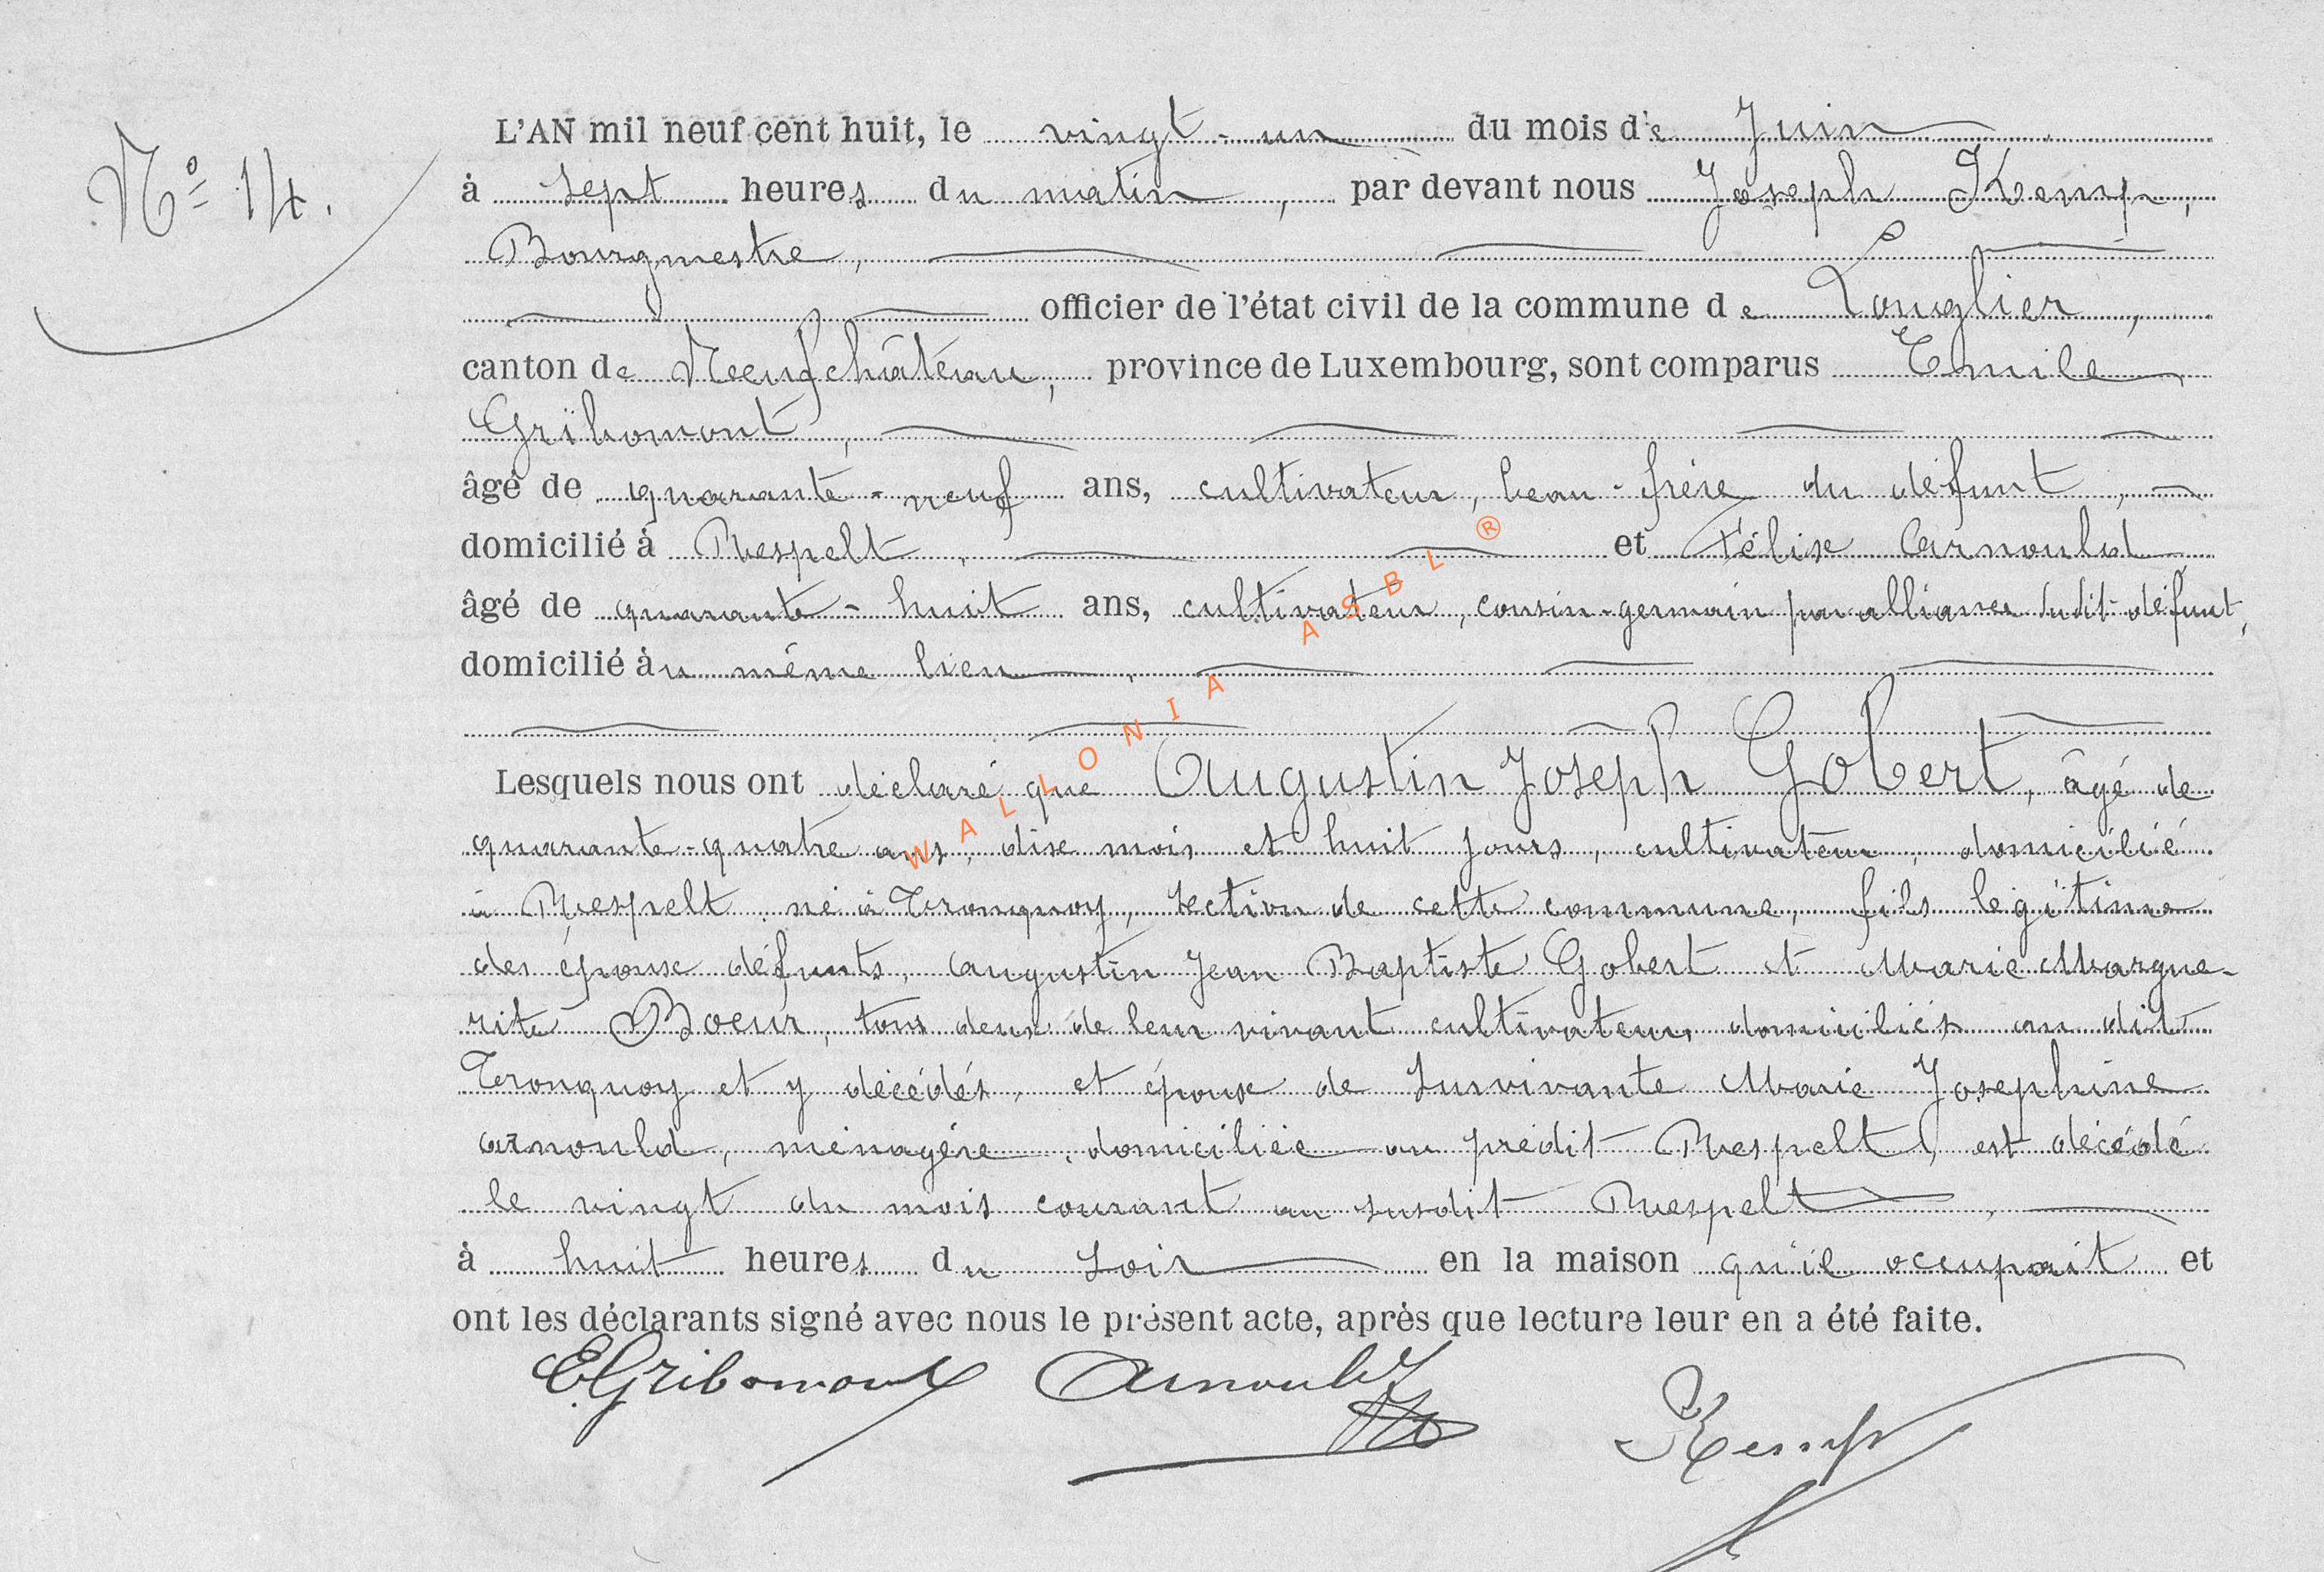 N° 14.
L'AN mil neuf cent huit, le vingt-un du mois de Juin
à sept heures du matin, par devant nous Joseph Kemp,
Bourgmestre,
officier de l'état civil de la commune de Longlier,
canton de Neufchâteau, province de Luxembourg, sont comparus Emile
Gribomont,
âgé de quarante-neuf ans, cultivateur, beau-frère du défunt,
domicilié à Respelt, et Félix Arnould
âgé de quarante-huit ans, cultivateur, cousin-germain par alliance dudit défunt,
domicilié au même lieu,
Lesquels nous ont déclaré que Augustin Joseph Gobert, âgé de
quarante-quatre ans, dix mois et huit jours, cultivateur, domicilié
à Respelt, né à Tronquoy, section de cette commune, fils légitime
des époux défunts, Augustin Jean Baptiste Gobert et Marie Margue-
rite Boeur, tous deux de leur vivant cultivateurs domiciliés au dit
Tronquoy et y décédés, et époux de survivante Marie Josephine
Arnould, ménagère, domiciliée au prédit Respelt, est décédé
le vingt du mois courant au susdit Respelt,
à huit heures du soir en la maison qu'il occupait et
ont les déclarants signé avec nous le présent acte, après que lecture leur en a été faite.
E. Gribomont Arnould Kemp
WALLONIA ASBL ®